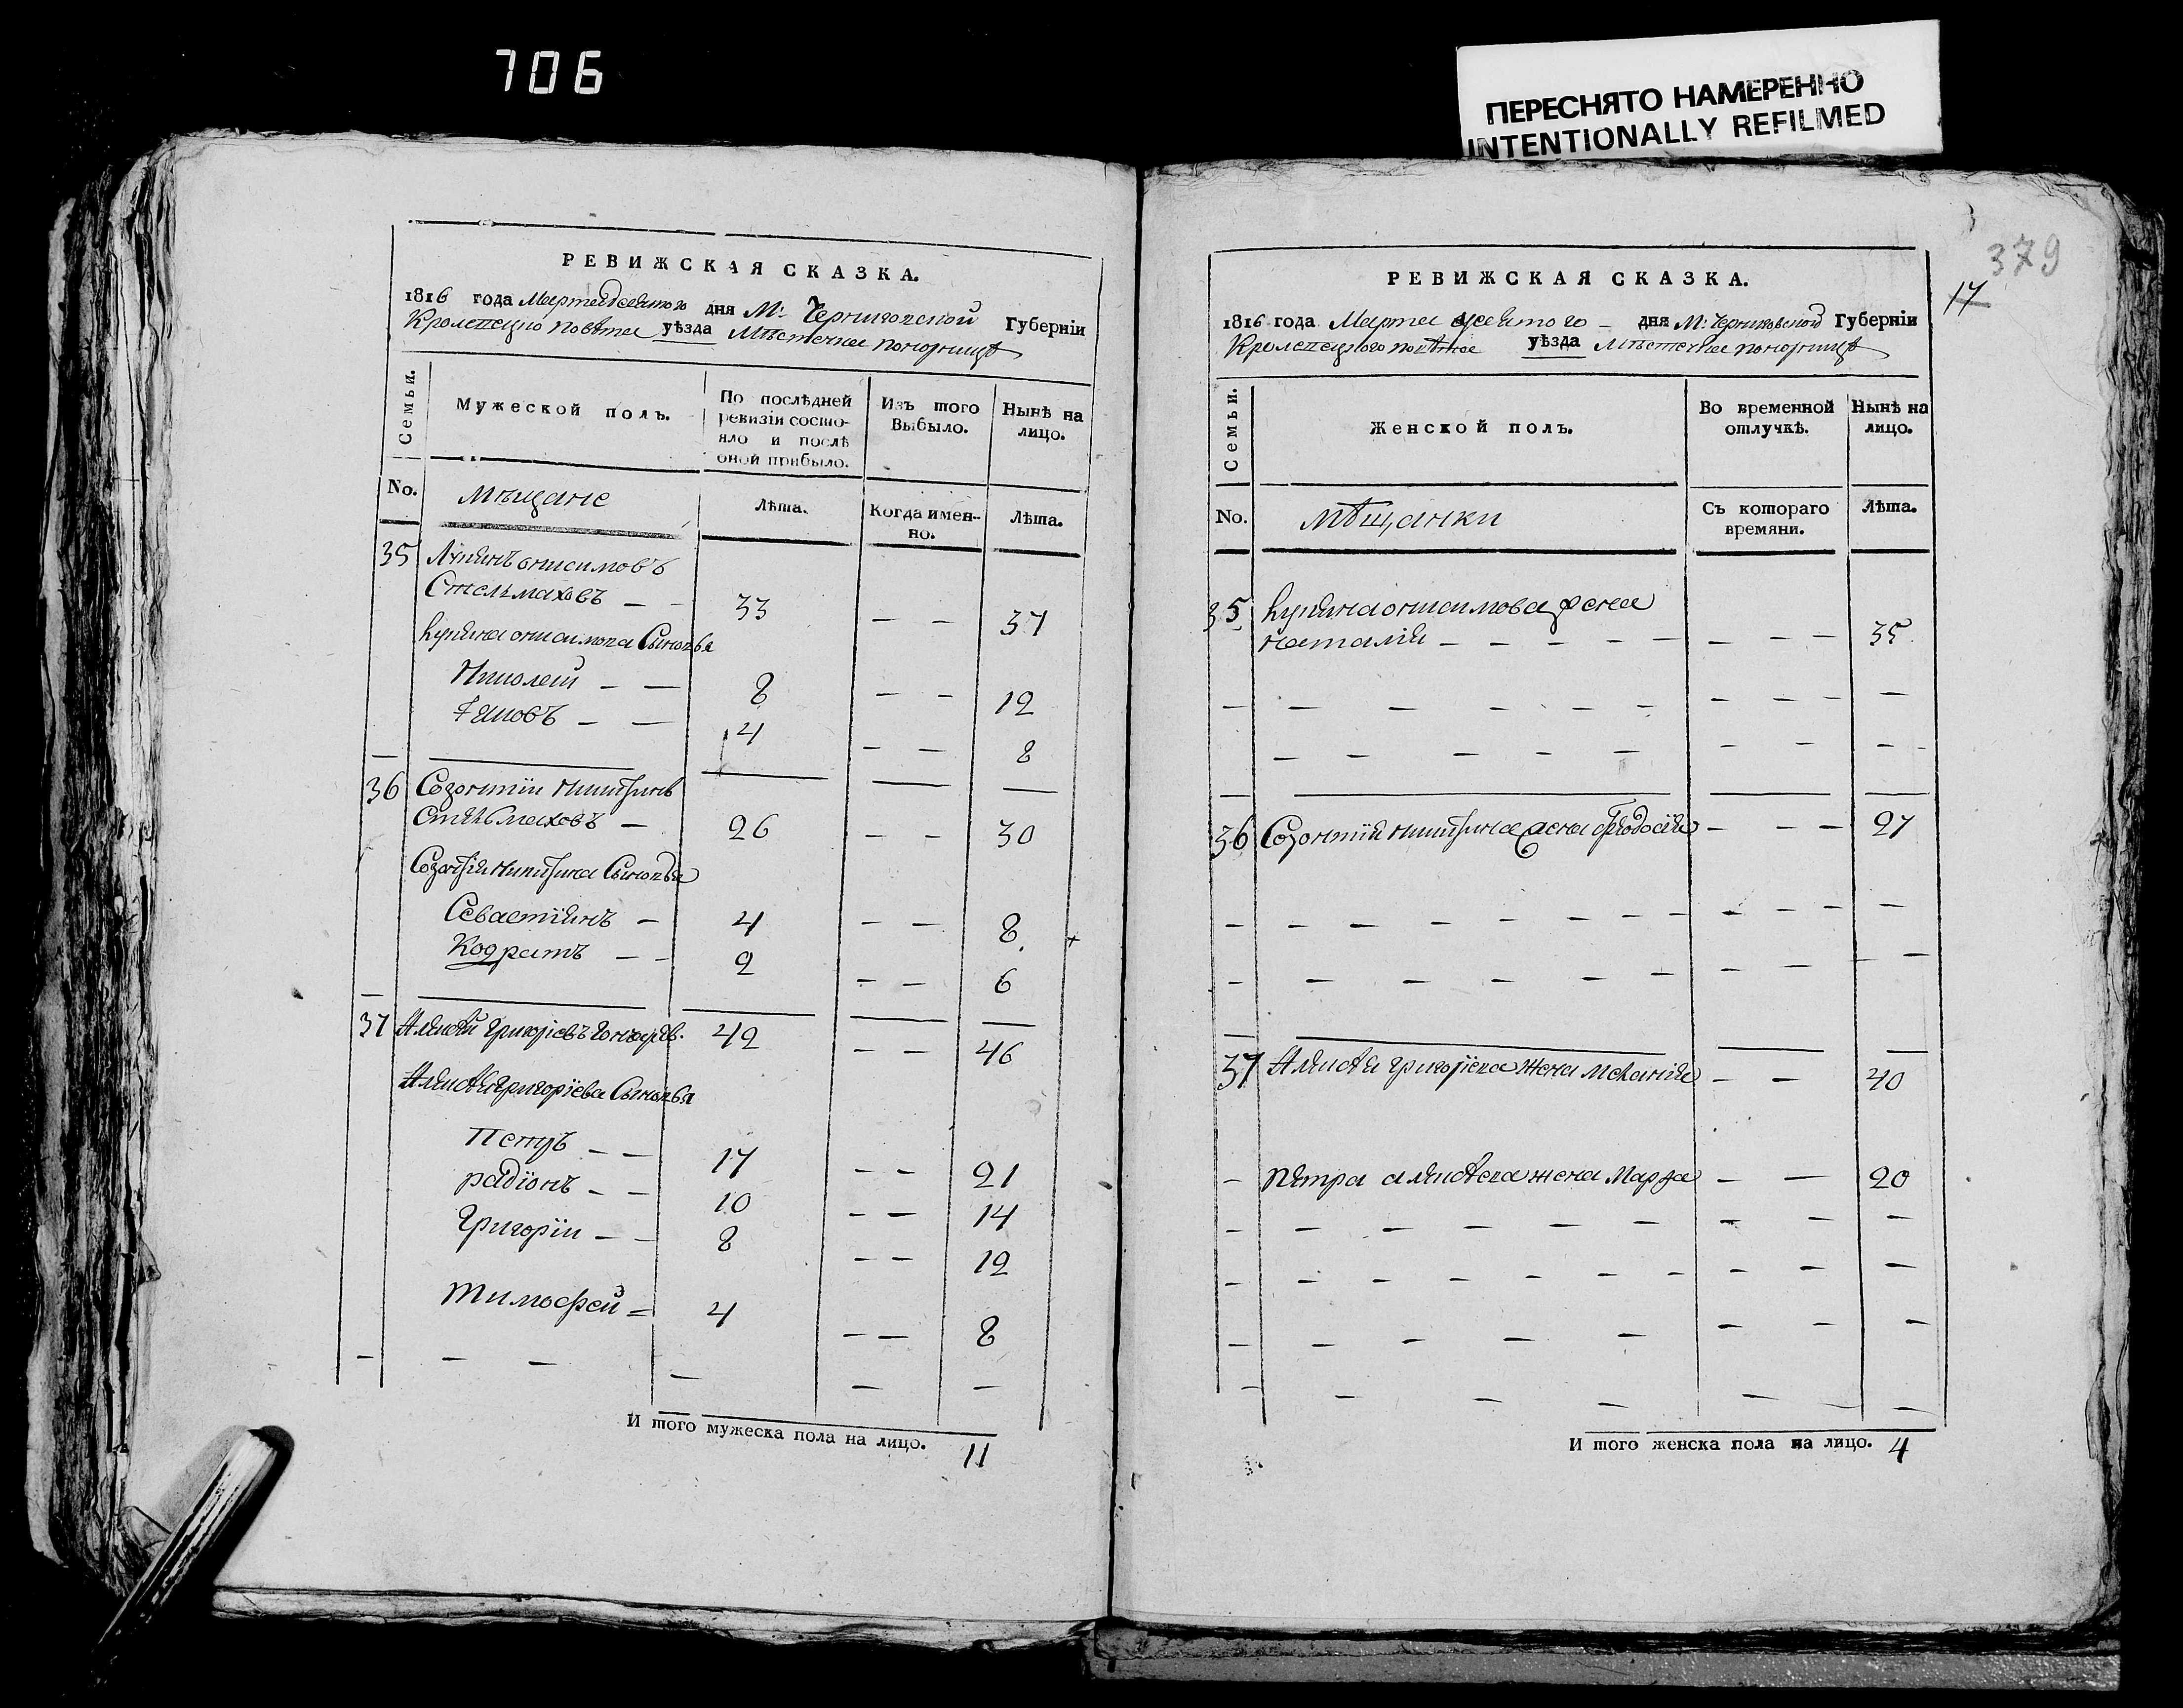 706
ПЕРЕСНЯТО НАМЕРЕННО
INTENTIONALLY REFILMED
РЕВИЖСКАЯ СКАЗКА.
1816 года Марта десятого дня М: Черниговской Губернiи
Кролевецко повѣта уѣзда Мѣстечка понорницѣ
Семьи.
Мужеской полъ.
По послѣдней ревизiи состояло и послѣ оной прибыло.
Изъ того Выбыло.
Нынѣ на лицо.
No.
мѣщане
Лѣта.
Когда именно.
Лѣта.
35 онисимовъ
Стельмаховъ — — 33 — — 37
онисимова Сыновья
Николай — — 8 — — 12
Яковъ — — 4 — — 8
36 Созонтiи никитинъ
Стельмаховъ — 26 — — 30
Созонтiя никитина Сыновья
Севастiянъ — 4 — — 8
Кодратъ — — 2 — — 6
37 Алексѣй григорiевъ гончаревъ. 42 — — 46
Алексѣя григорiева Сыновья
Петръ — — 17 — — 21
радiонъ — — 10 — — 14
Григорiи — — 8 — — 12
Тимофей = 4 — — 8
И того мужеска пола на лицо. 11
379
17
РЕВИЖСКАЯ СКАЗКА.
1816 года Марта десятого — дня М: Черниговской Губернiи
Кролевецкого повѣта уѣзда Мѣстечка понорницѣ
Семьи.
Женской полъ.
Во временной отлучкѣ.
Нынѣ на лицо.
No.
мѣщанки
Съ котораго времяни.
Лѣта.
35 онисимова жена
наталiя — — — — — — — — 35
36 Созонтiя никитина жена Феодосiя — — — 27
37 Алексѣя григорiева жена Меланiя — — 40
— Петра алексѣева жена Марфа — — 20
И того женска пола на лицо. 4